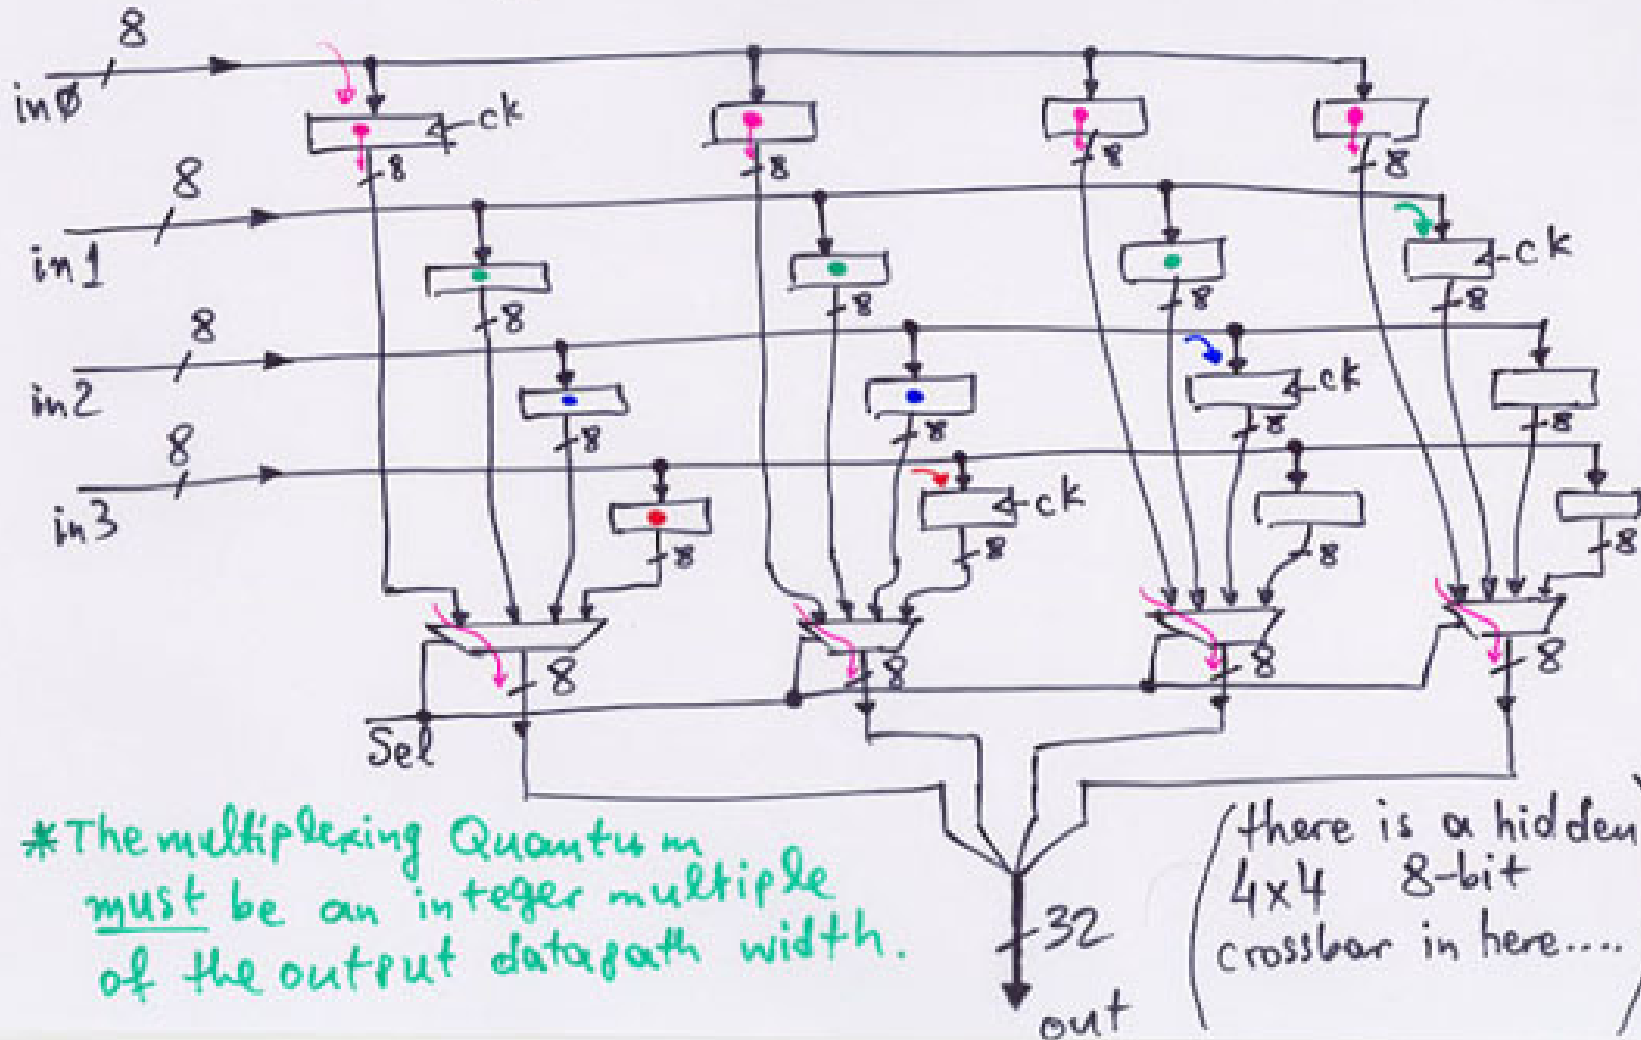 8
in0
ck
8 8 8 8
8
in1
ck
8 8 8 8
8
in2
ck
8 8 8 8
8
in3
ck
8 8 8 8
8 8 8 8
Sel
*The multiplexing Quantum
must be an integer multiple
of the output datapath width.
32
out
(there is a hidden
4x4 8-bit
crossbar in here....)